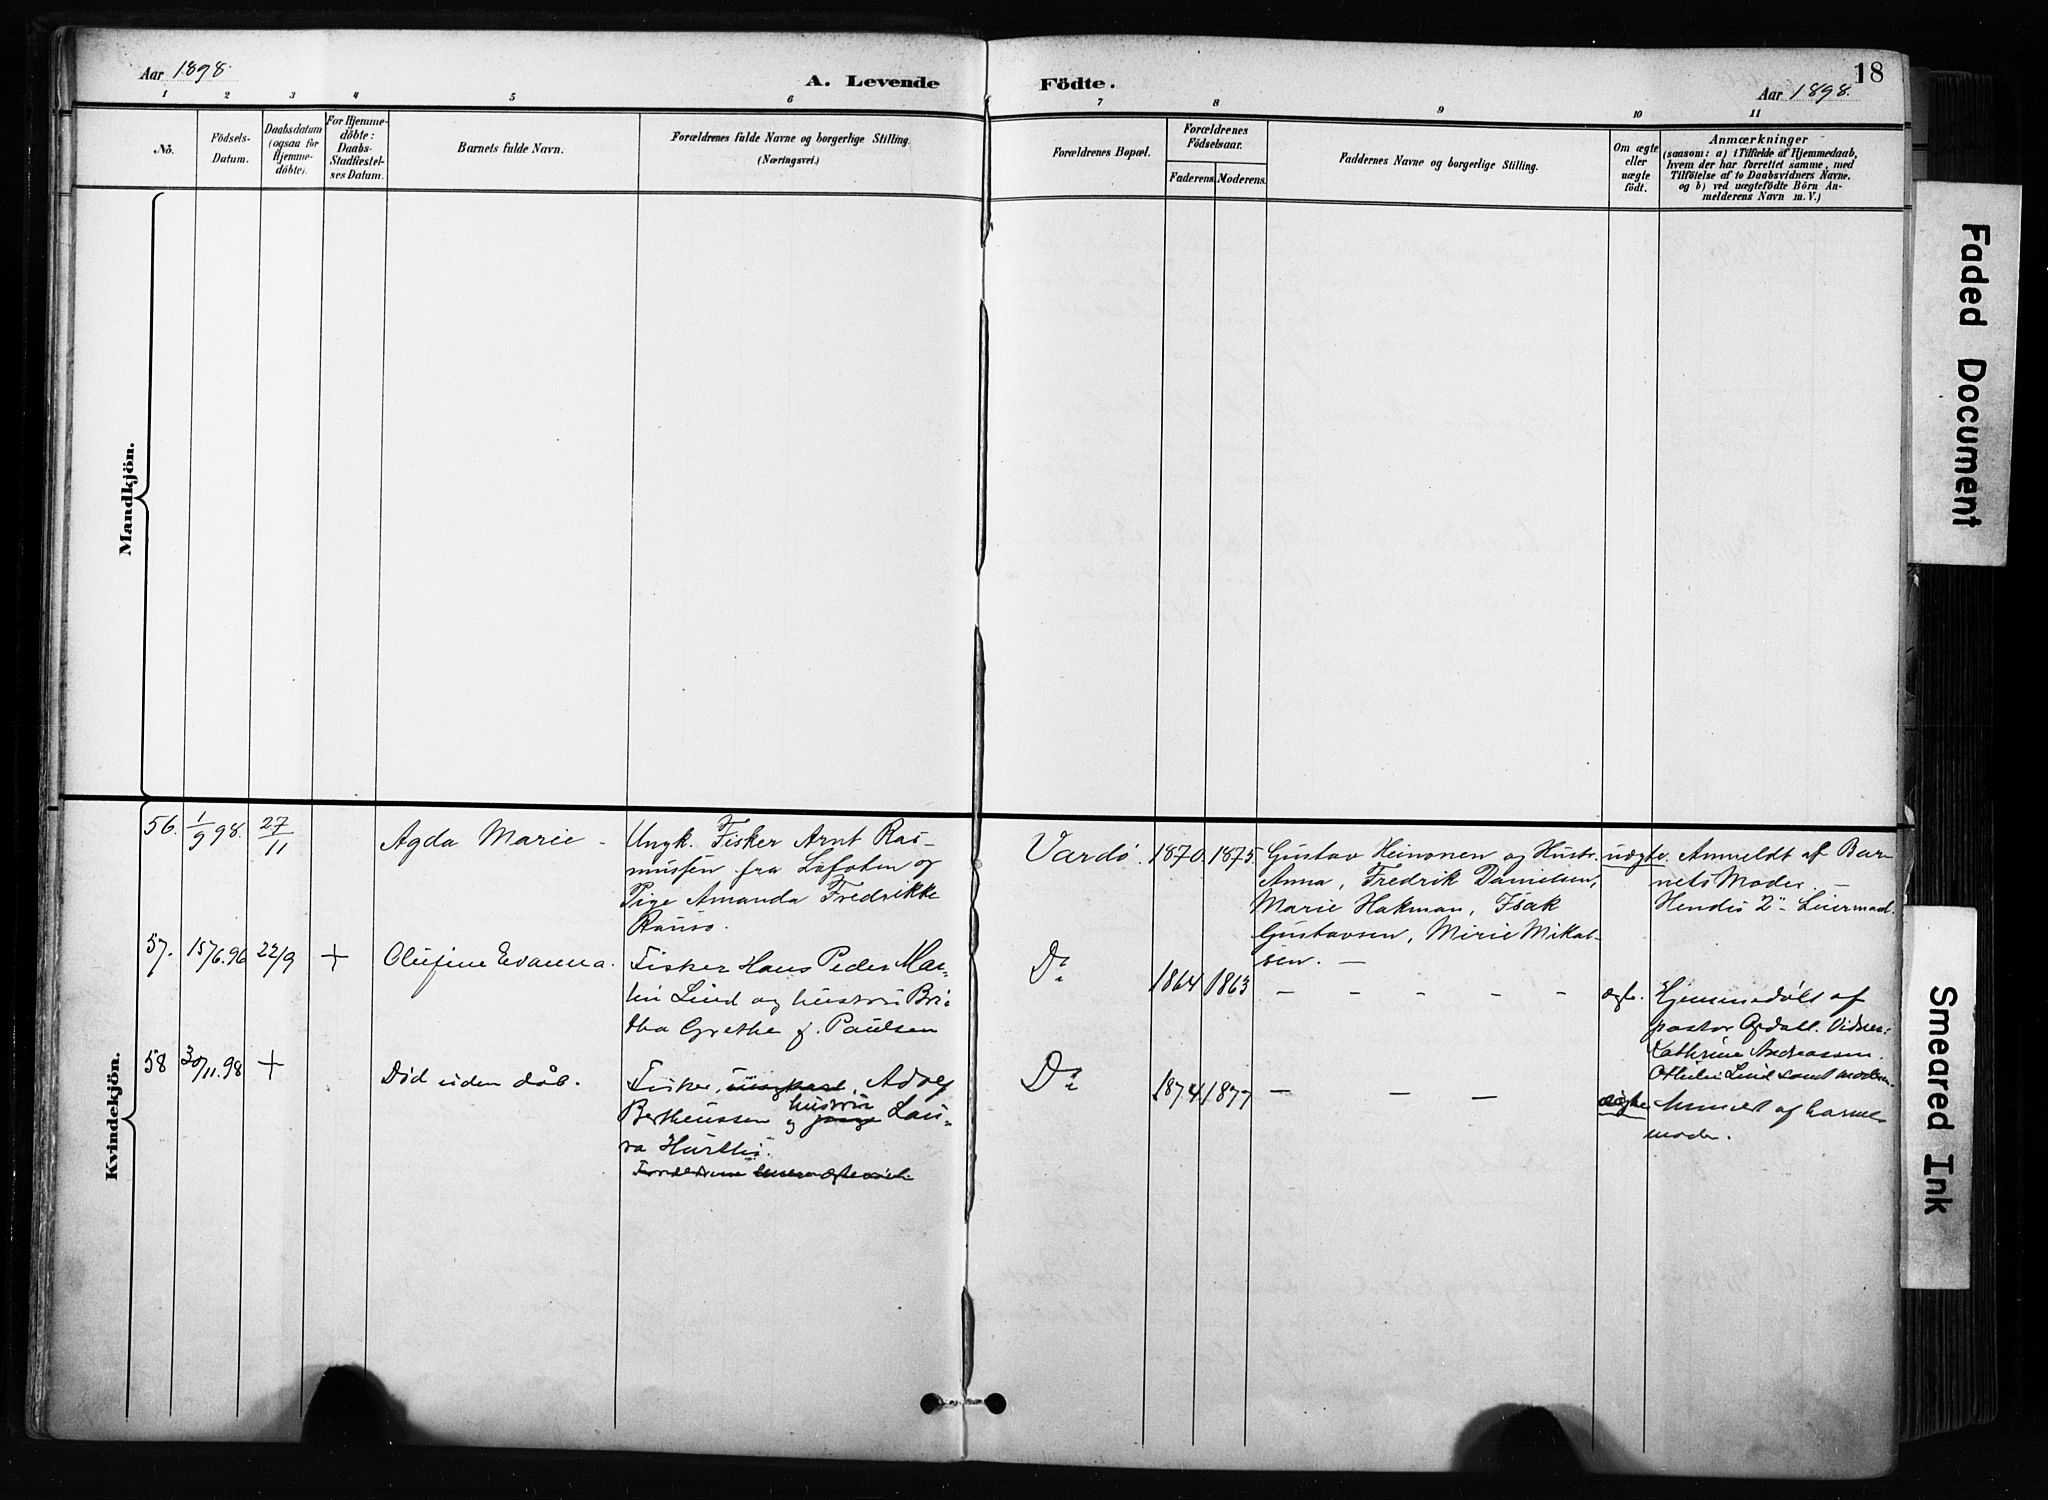 Aar 1898.
A. Levende Födte.
18
Aar 1898.
1 2 3 4 5 6 7 8 9 10 11
No.
Födsels-
Datum.
Daabsdatum
(ogsaa for
Hjemme-
döbte).
For Hjemme-
döbte:
Daabs-
Stadfæstel-
ses Datum.
Barnets fulde Navn.
Forældrenes fulde Navne og borgerlige Stilling.
(Næringsvei.)
Forældrenes Bopæl.
Forældrenes
Födselsaar.
Faderens. Moderens.
Faddernes Navne og borgerlige Stilling.
Om ægte
eller
uægte
födt.
Anmærkninger
(saasom: a) i Tilfælde af Hjemmedaab,
hvem der har forrettet samme, med
Tilföielse af to Daabsvidners Navne.
og b) ved uægtefödte Börn An-
melderens Navn m. V.)
Mandkjön.
Kvindekjön.
56.
1/9 98.
27/11
Agda Marie -
Ungk. Fisker Arnt Ras-
mussen fra Lofoten og
Pige Amanda Fredrikke
Vardö.
1870.
1875.
Gustav Heinonen og Hustr.
Anna, Fredrik Danielsen,
Marie Hakman, Isak
Gustavsen, Mirie Mikal-
sen. -
uægte.
Anmeldt af Bar-
nets Moder. -
Hendes 2den Leiermaal.
57.
15/6.96
22/9
+
Olufine Evanna.
Fisker Hans Peder Mar-
tin Lind og hustru Bri-
tha Grethe f. Paulsen
Do
1864
1863
- - - - -
ægte.
Hjemmedöbt af
pastor Opdall. Vidner:
Kathrine Andreassen.
Othilie Lind samt moderen.
58
30/11.98
+
Död uden dåb.
Fisker, ungkarl, Adolf
Bertheussen og hustru pige Lau-
ra
Do
1874
1877
- - -
ægte
Anmeldt af barnets
moder.
Faded Document
Smeared Ink